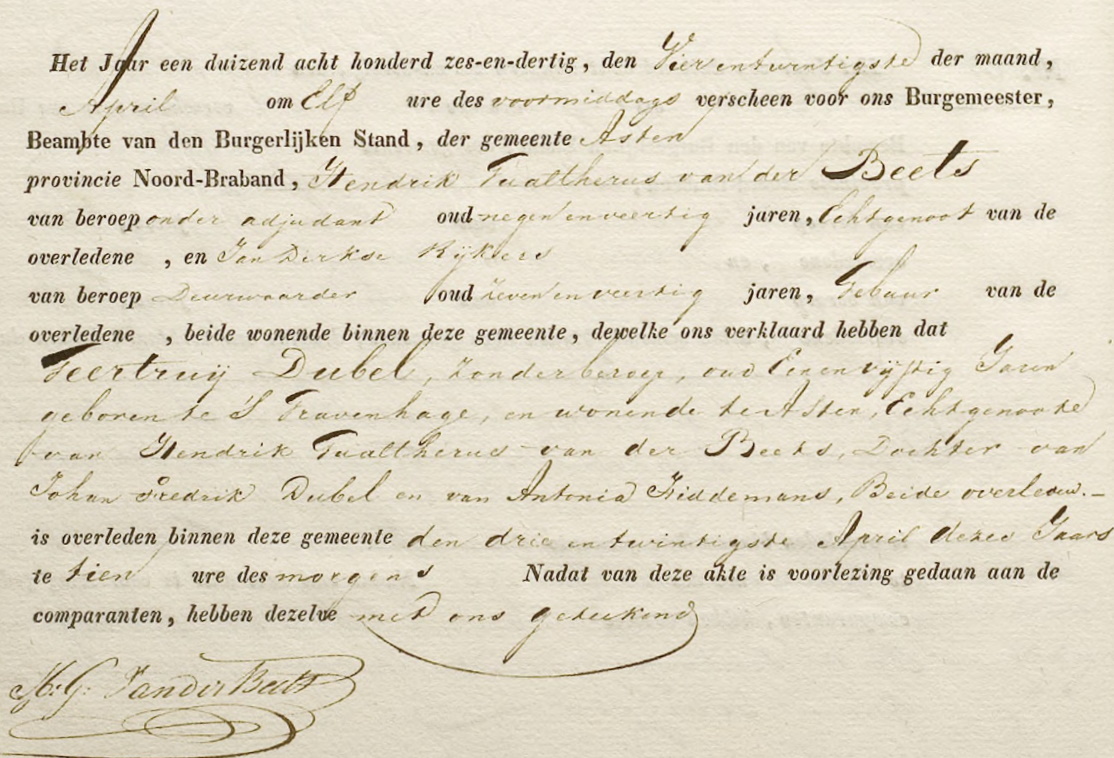 Het Jaar een duizend acht honderd zes-en-dertig, den Vierentwintigste der maand,
April om Elf ure des voormiddags verscheen voor ons Burgemeester,
Beambte van den Burgerlijken Stand, der gemeente Asten
provincie Noord-Braband, Hendrik Gualtherus van der Beets
van beroep onder adjudant oud negen en veertig jaren, Echtgenoot van de
overledene , en Jan Dirkse Rijkers
van beroep Deurwaarder oud zeven en veertig jaren, Gebuur van de
overledene , beide wonende binnen deze gemeente, dewelke ons verklaard hebben dat
Geertruij Dubel, zonder beroep, oud Eenenvijftig Jaren
geboren te 'S Gravenhage, en wonende te Asten, Echtgenoote
van Hendrik Gualtherus van der Beets, Dochter van
Johan Fredrik Dubel en van Antonia Hiddemans, Beide overleden.-
is overleden binnen deze gemeente den drie entwintigste April dezes Jaars
te tien ure des morgens Nadat van deze akte is voorlezing gedaan aan de
comparanten, hebben dezelve met ons geteekend
H: G: Van der Beets